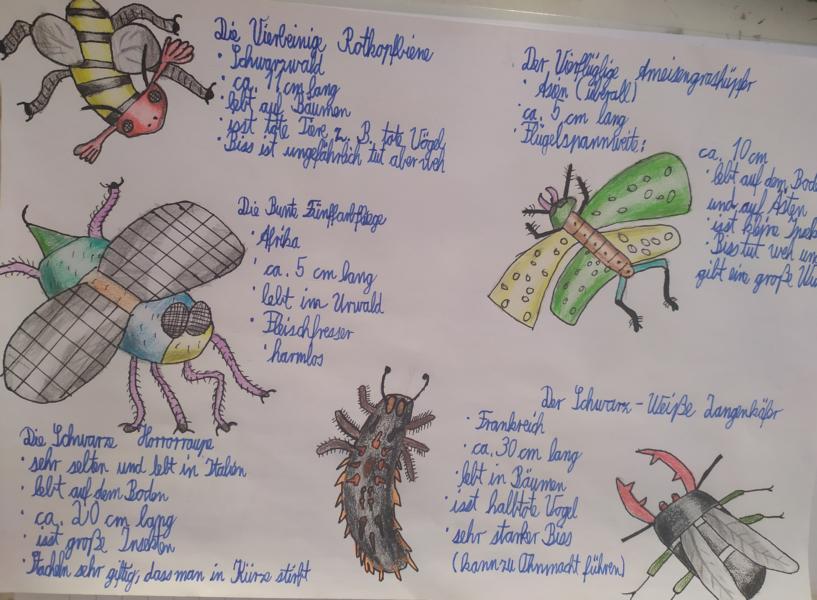 Die Vierbeinige Rotkopfbiene
· Schwarzwald
· ca. 11 cm lang
· lebt auf Bäumen
· isst tote Tiere z. B. tote Vögel
· Biss ist ungefährlich tut aber weh
Der Vierflüglige Ameisengrashüpfer
· Asien (überall)
· ca. 5 cm lang
· Flügelspannweite:
ca. 10 cm
· lebt auf dem Bode
und auf Ästen
· isst kleine
· Biss tut weh un
gibt eine große
Die Bunte Fünffarbfliege
· Afrika
· ca. 5 cm lang
· lebt im Urwald
· Fleischfresser
· harmlos
Die Schwarze Horrorraupe
· sehr selten und lebt in Italien
· lebt auf dem Boden
· ca. 20 cm lang
· isst große Insekten
· Stacheln sehr giftig, dass man in Kürze stirbt
Der Schwarz-Weiße Zangenkäfer
· Frankreich
· ca. 30 cm lang
· lebt in Bäumen
· isst halbtote Vögel
· sehr starker Biss
(kann zu Ohnmacht führen)